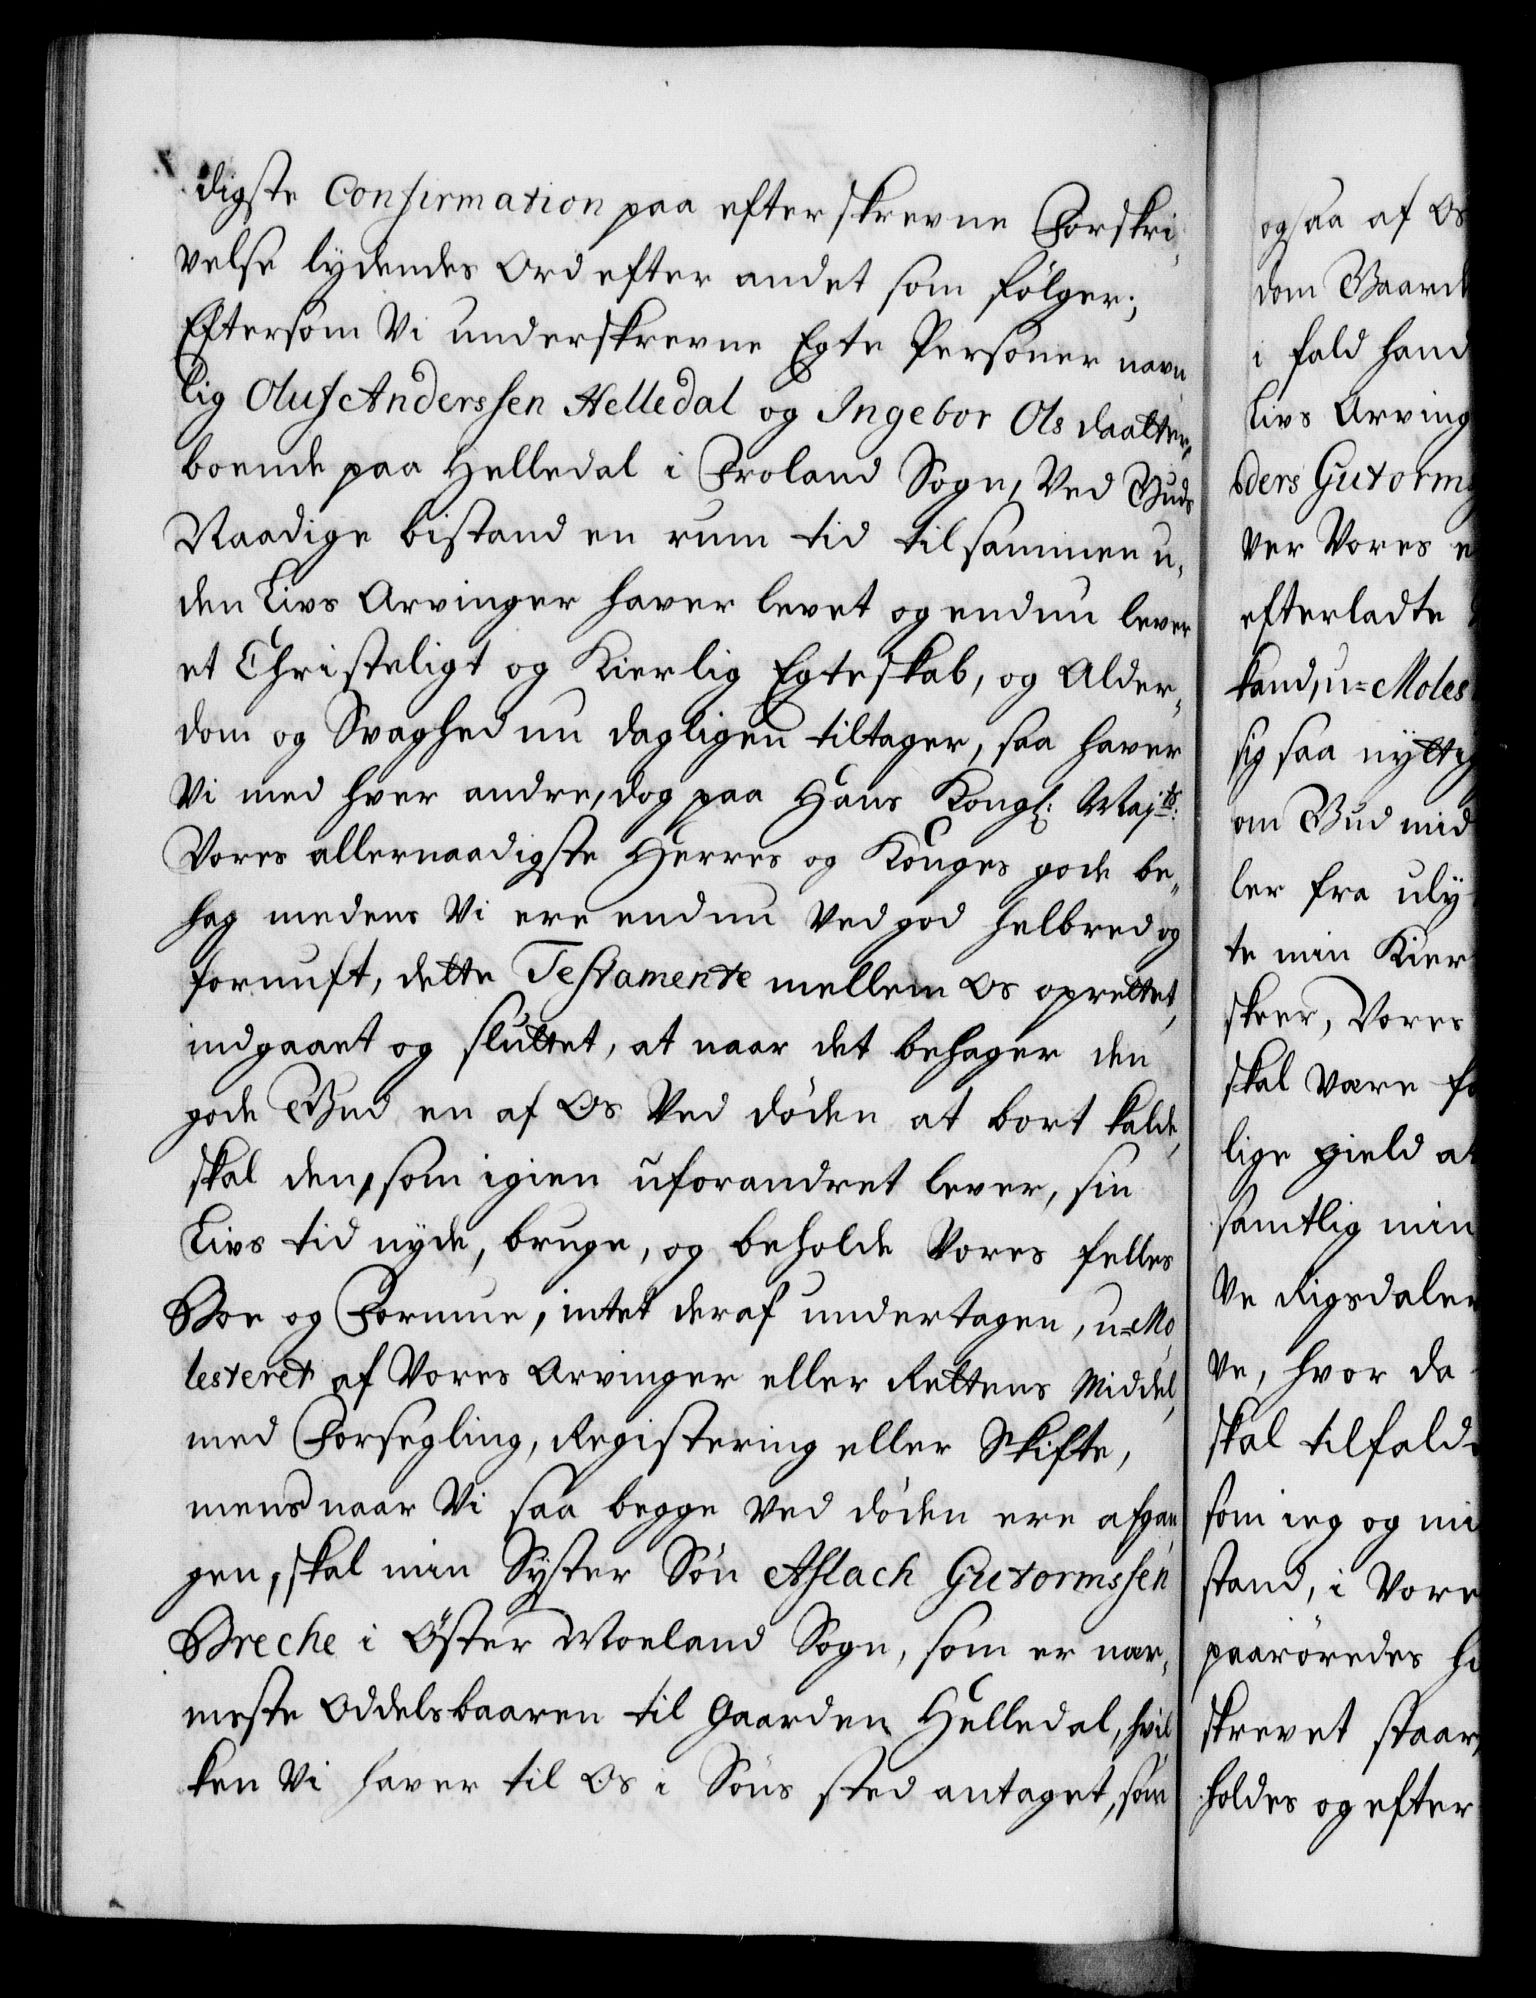 digste Confirmation paa efterskrevne Forskri„
velse lydendes Ord efter andet som følger;
Eftersom Vi underskrevne Egte Personer navn„
lig Oluf Anderssen Helledal og Ingebor Ols daatter,
boende paa Helledal i Froland Sogn, Ved Guds
Naadige bistand en rum tid tilsammen u„
den Livs Arvinger haver levet og endnu lever
et Christeligt og Kierlig Egteskab, og Alder„
dom og Svaghed nu dagligen tiltager, saa haver
Vi med hver andre, dog paa Hans Kongl: Maj.ts:
Vores allernaadigste Herres og Konges gode be„
hag medens Vi ere endnu Ved god helbred og
fornuft, dette Testamente mellem Os oprettet,
indgaaet og sluttet, at naar det behager den
gode Gud en af Os Ved døden at bort kalde,
skal den, som igien uforandret lever, sin
Livs tid nyde, bruge, og beholde Vores felles
Boe og Formue, intet deraf undertagen, u-Mo„
lesteret af Vores Arvinger eller Rettens Middel,
med Forsegling, Registering eller Skifte,
mens naar Vi saa begge Ved døden ere afgan„
gen, skal min Syster Søn Aslach Gutormssen
Breche i Øster Moeland Sogn, som er nær„
meste Oddelsbaaren til Gaarden Helledal, hvil„
ken Vi haver til Os i Søns sted antaget, som
ogsaa af Os
dom Gaard
i fald hand
Livs Arving
ders Gutorm
ver Vores e
efterladte
kand, u=Moles
sig saa nytt
om Gud mid
ler fra uly
te min Kier
skeer, Vores
skal være fo
lige gield at
samtlig min
Ve Rigsdaler
ve, hvor da
skal tilfald
som ieg og mi
stand, i Vore
paarøredes h
skrevet staar,
holdes og efter